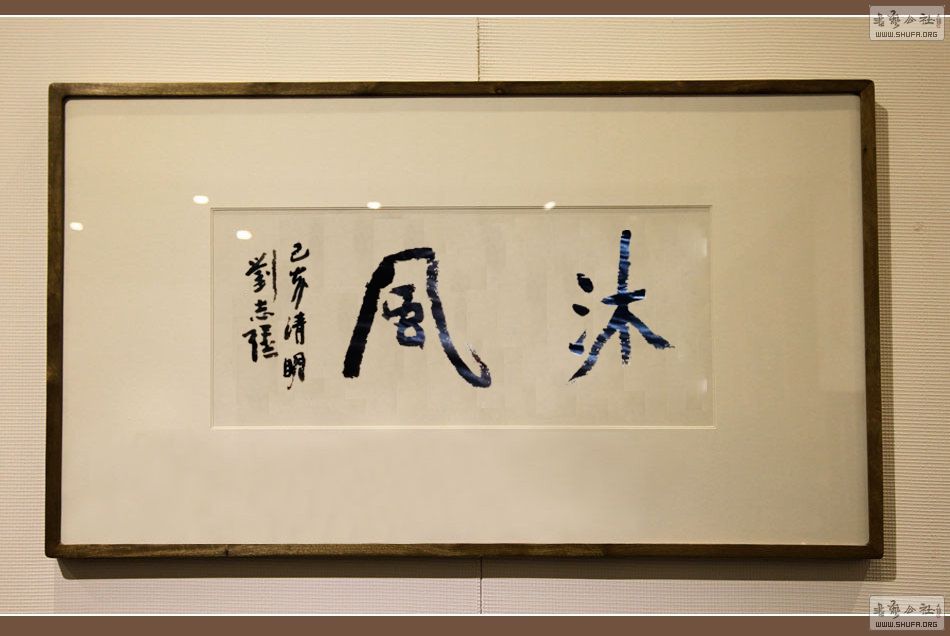 沐風
己亥清明
劉志
书艺公社
WWW.SHUFA.ORG
书艺公社
WWW.SHUFA.ORG